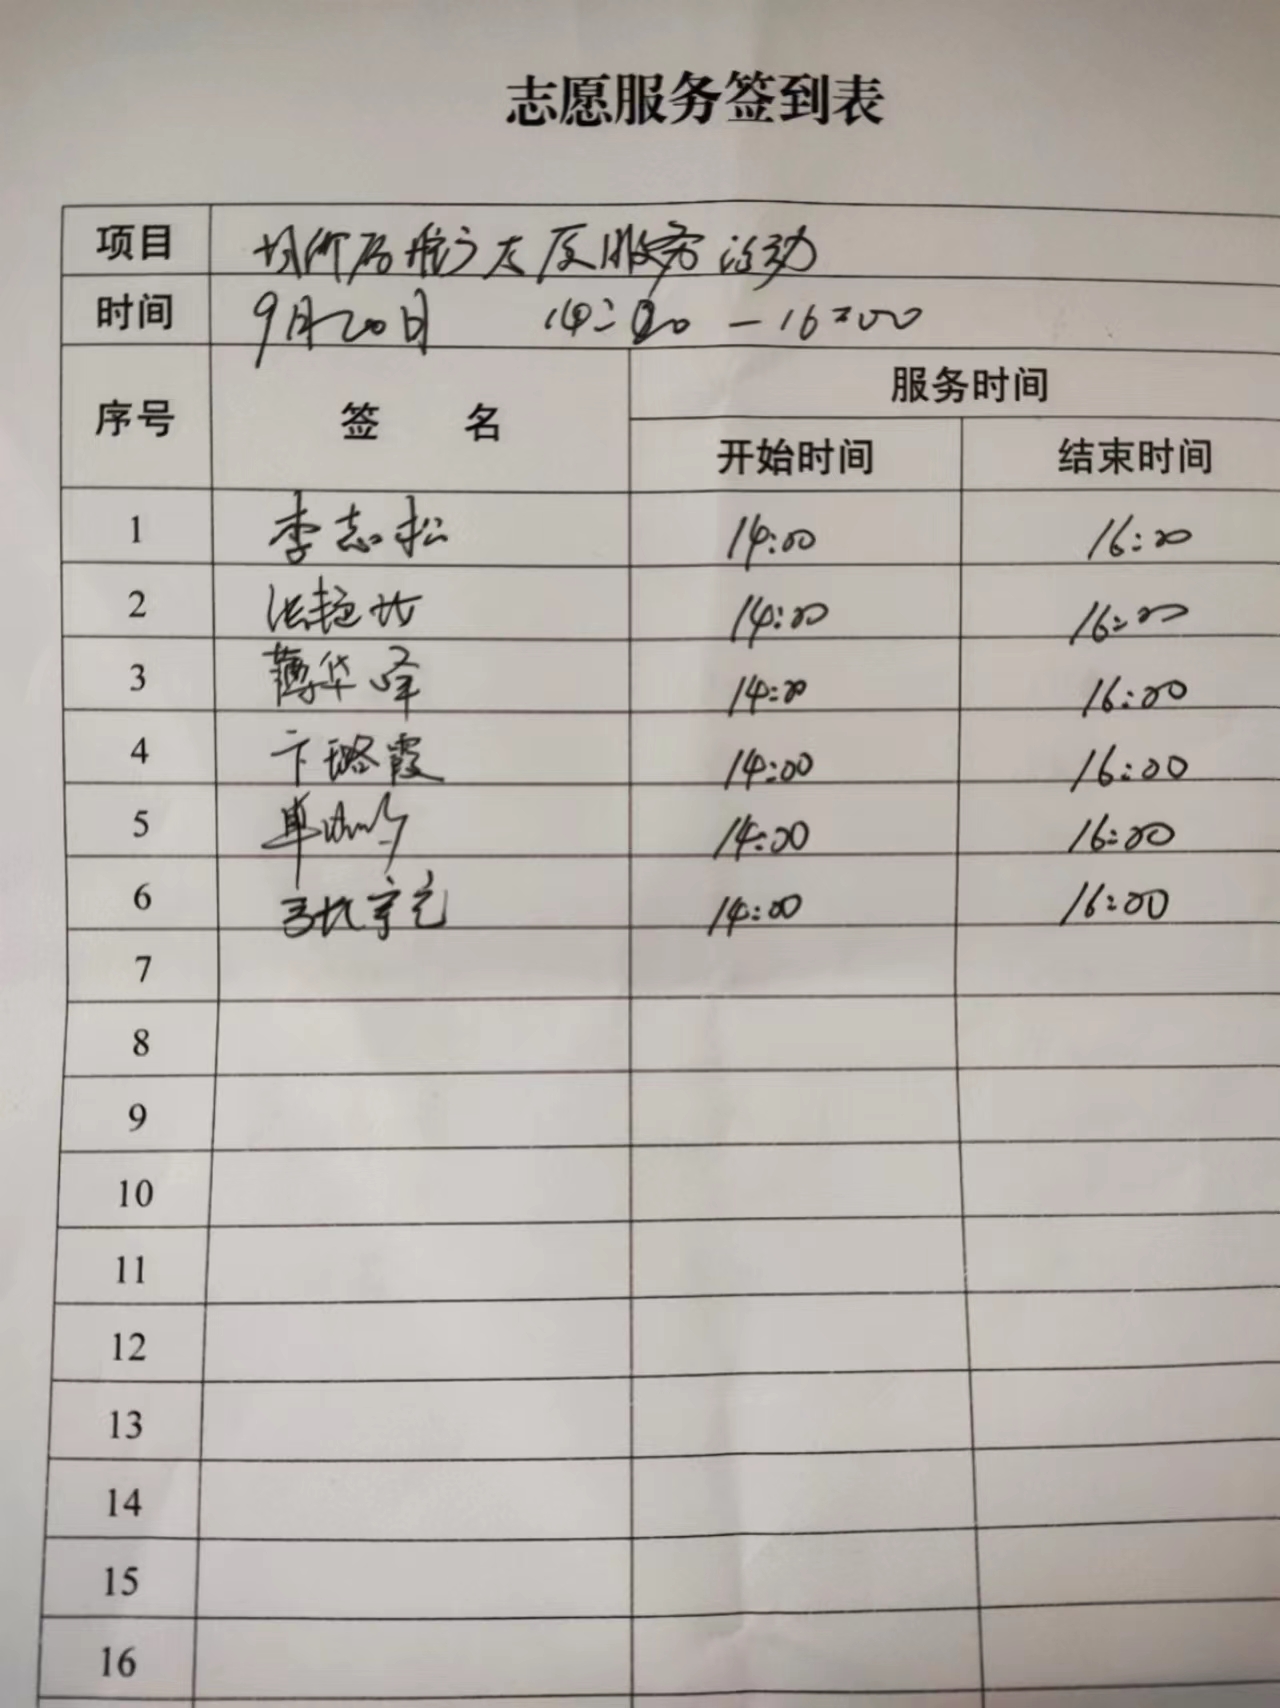 志愿服务签到表
项目 服务活动
时间 9月20日 14:00 - 16:00
序号 签 名 服务时间
开始时间 结束时间
1 李志松 14:00 16:00
2 14:00 16:00
3 华峰 14:00 16:00
4 卞璐霞 14:00 16:00
5 单 14:00 16:00
6 14:00 16:00
7
8
9
10
11
12
13
14
15
16